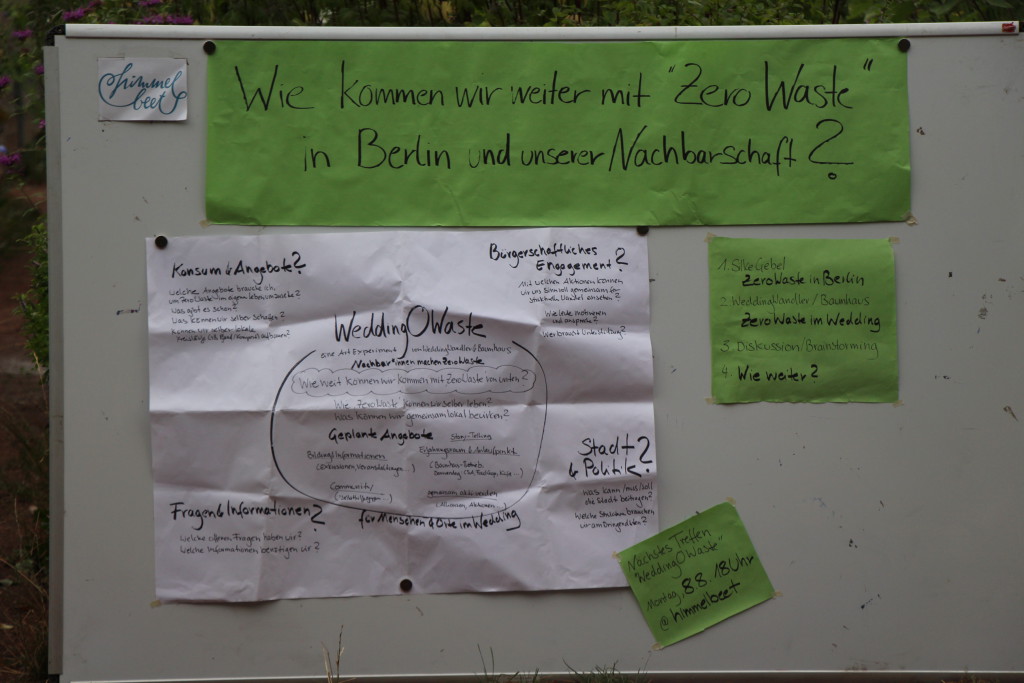 himmel
beet
Wie kommen wir weiter mit "Zero Waste"
in Berlin und unserer Nachbarschaft?
Konsum & Angebote?
welche Angebote brauche ich,
um ZeroWaste im eigenen Leben umzusetzen?
was gibt es schon?
Was können wir selber schaffen?
können wir selber lokale
Bürgerschaftliches
Engagement?
Mit welchen Aktionen können
wir uns sinnvoll gemeinsam für
strukturellen Wandel einsetzen?
Wie Leute motivieren
und ansprechen?
Wer braucht Unterstützung?
Wedding0Waste
eine Art Experiment von WeddingWandler & Baumhaus
Nachbar*innen machen ZeroWaste
Wie weit können wir kommen mit ZeroWaste von unten?
Wie "ZeroWaste" können wir selber leben?
Was können wir gemeinsam lokal bewirken?
Geplante Angebote
Story-Telling
Bildung/Informationen
(Exkursionen, Veranstaltungen ...)
Erfahrungsraum & Anlaufpunkt
Community
gemeinsam aktiv werden
(Allianzen, Aktionen)
für Menschen & Orte im Wedding
Stadt
& Politik?
was kann/muss/soll
die Stadt beitragen?
Welche Strukturen brauchen
wir am Dringendsten?
Fragen & Informationen?
welche offenen Fragen haben wir?
welche Informationen benötigen wir?
1. Silke Gebel
ZeroWaste in Berlin
2. WeddingWandler / Baumhaus
Zero Waste im Wedding
3. Diskussion/Brainstorming
4. Wie weiter?
Nächstes Treffen
"Wedding0Waste"
Montag, 8.8. 18 Uhr
@ himmelbeet